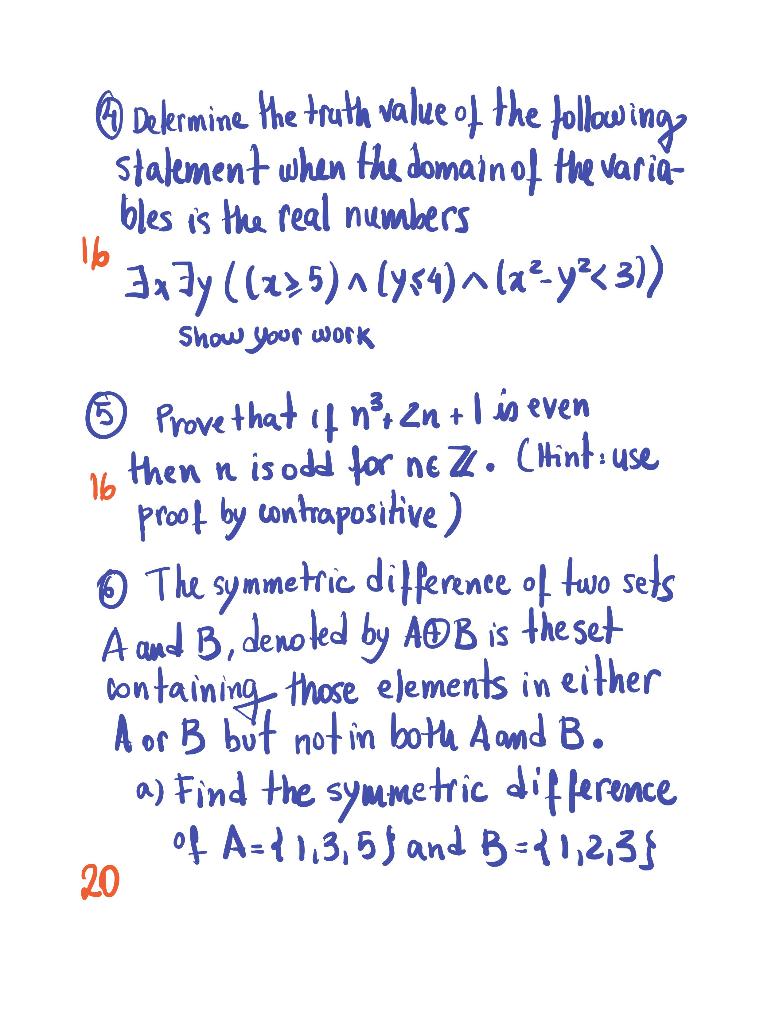 ④ Determine the truth value of the following
statement when the domain of the varia-
bles is the real numbers
16
∃x∃y((x≥5)∧(y≤4)∧(x²-y²<3))
Show your work
⑤ Prove that if n³+2n+1 is even
then n is odd for n∈ℤ. (Hint: use
16
proof by contrapositive)
⑥ The symmetric difference of two sets
A and B, denoted by A⊕B is the set
containing those elements in either
A or B but not in both A and B.
a) Find the symmetric difference
of A={1,3,5} and B={1,2,3}
20